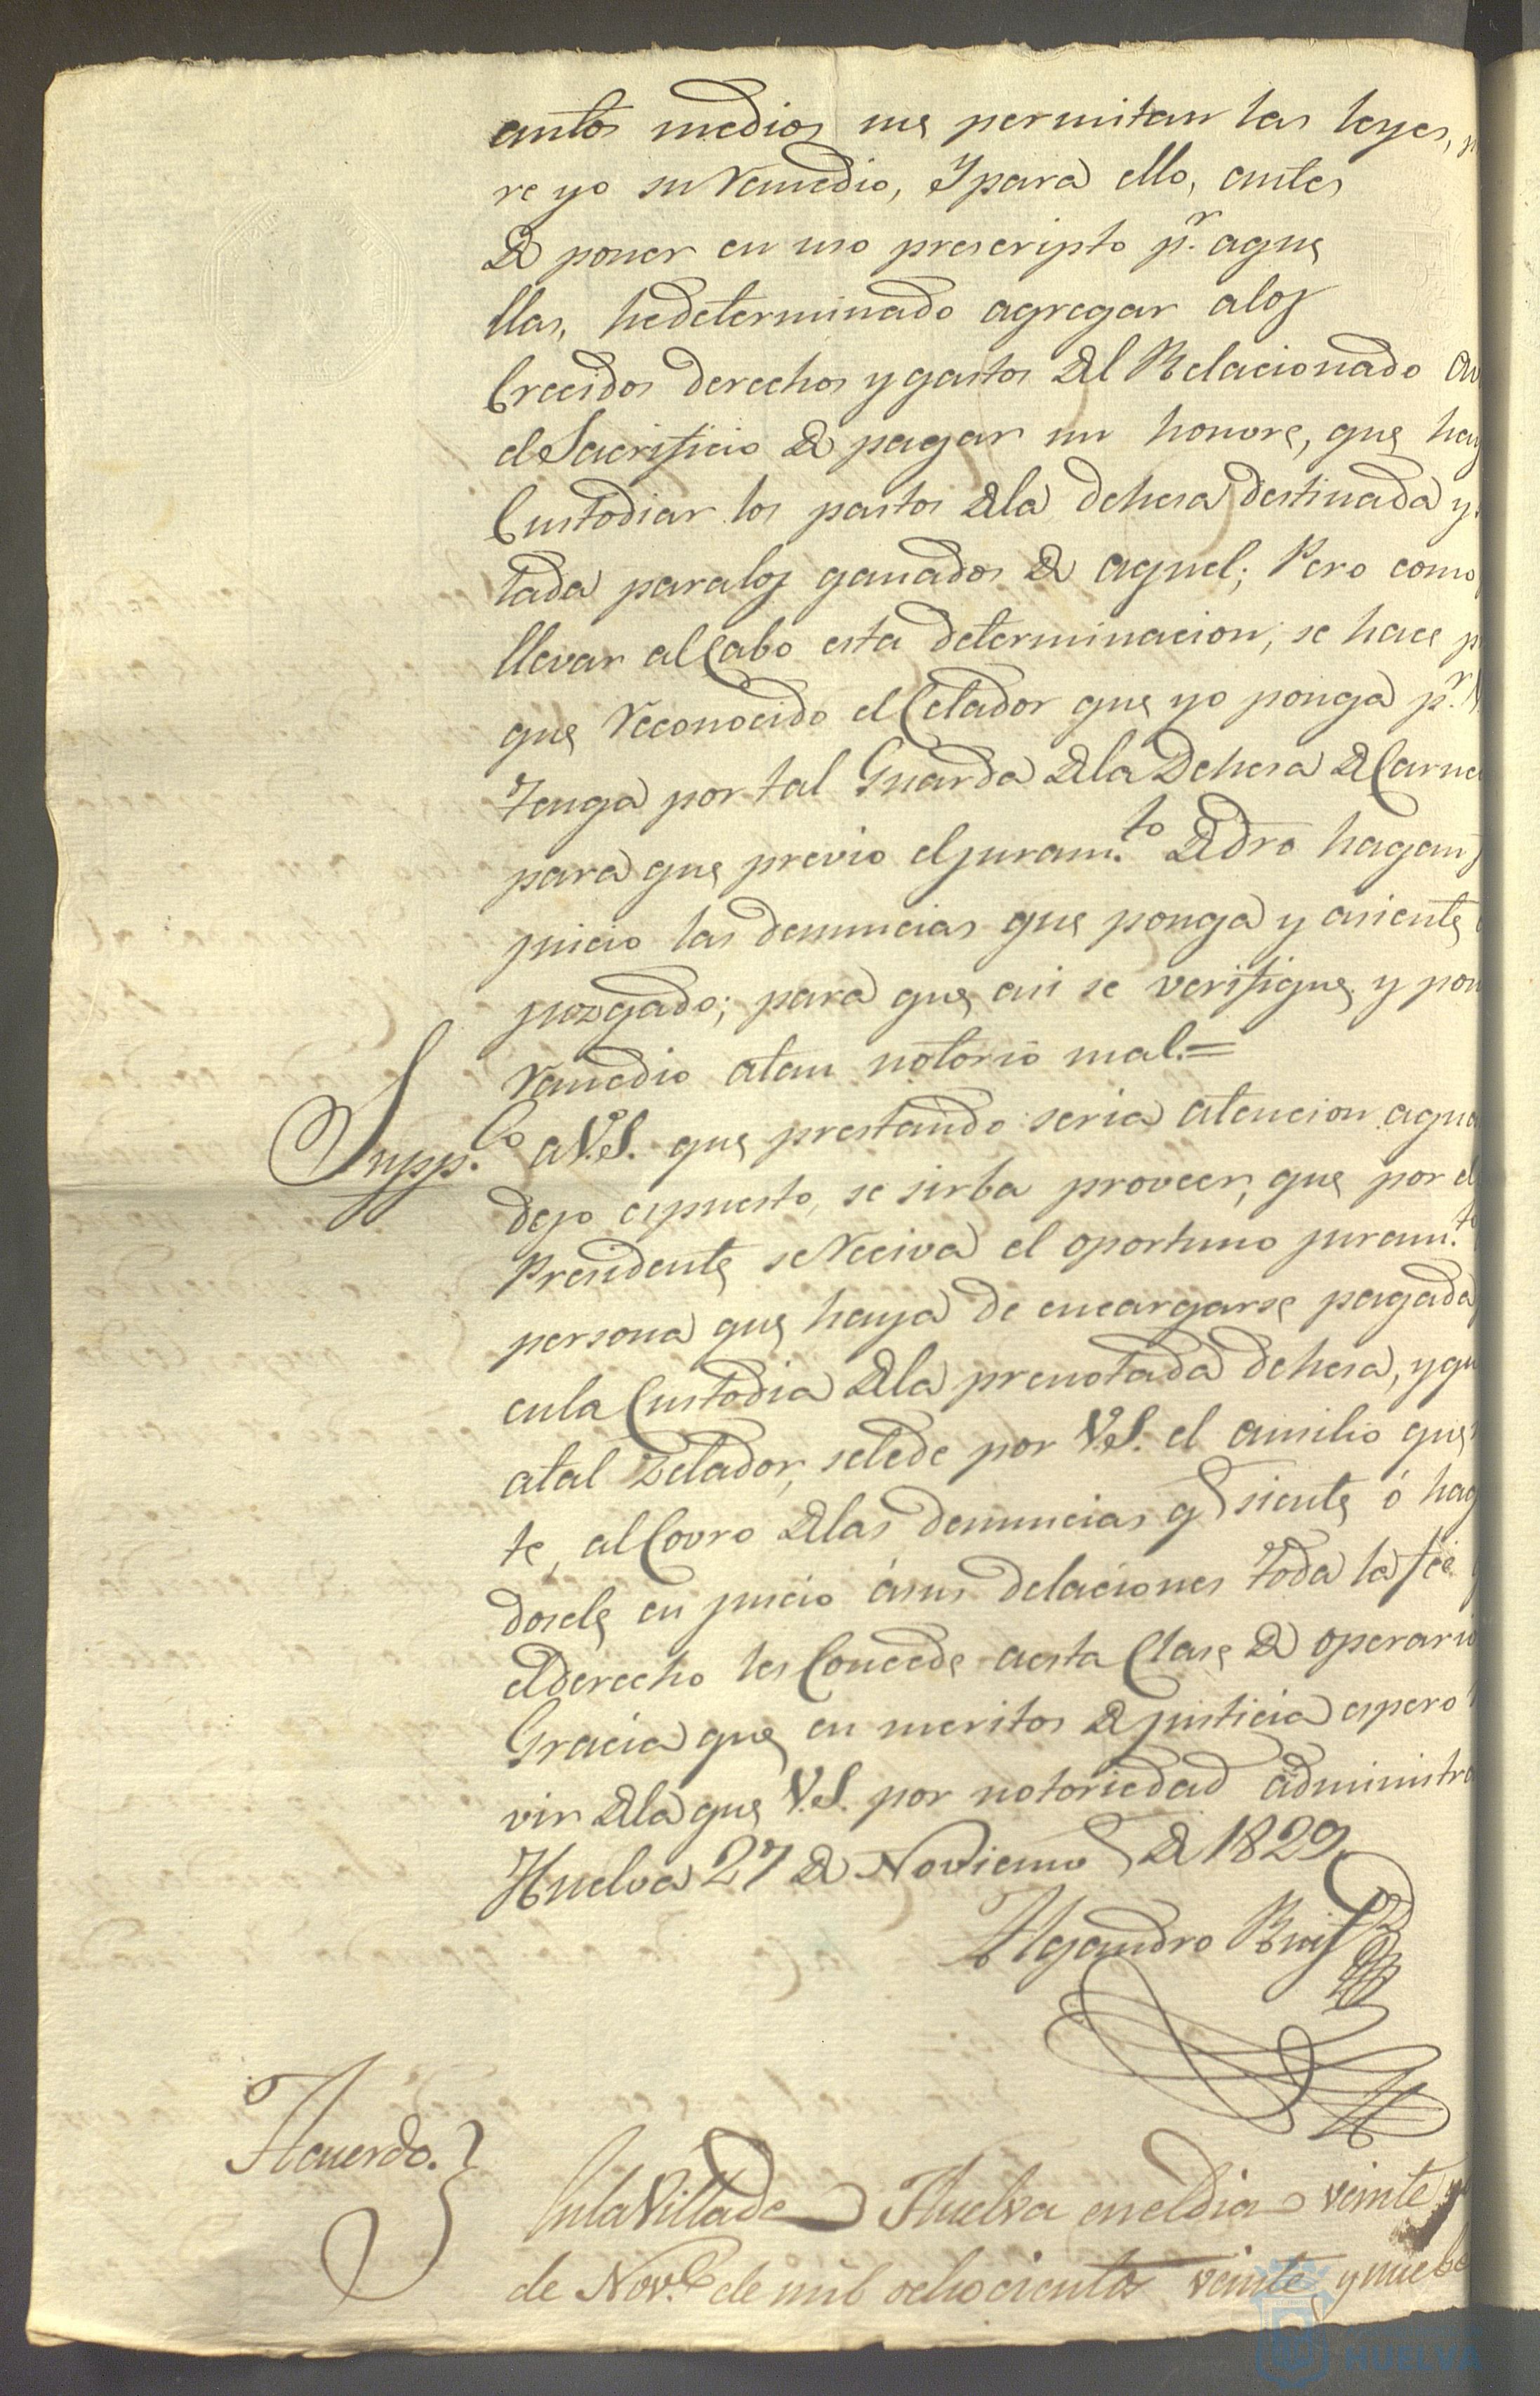 antos medios me permitan las leyes,
re yo su remedio, y para ello, antes
de poner en uso prescripto p.r aque
llas, hedeterminado agregar alos
Crecidos derechos y gastos del Relacionado
el Sacrificio de pagar un honvre, que hay
Custodiar los pastos dela dehesa destinada y
tada paralos ganados de aquel; Pero como
llevar al Cabo esta determinacion, se hace p
que reconocido el Celador que yo ponga p.r
Tenga por tal Guarda dela Dehesa de Carne
para que previo el juram.to de dro hagan
juicio las denuncias que ponga y asiente
juzgado; para que asi se verifique, y pon
remedio atan notorio mal.=
Supp.co a V.S. que prestando seria atencion aqua
dejo espuesto, se sirba proveer, que por el
Presidente se Reciva el oportuno juram.to
persona que haya de encargarse pagada
enla Custodia dela prenotada dehesa, y qu
atal Zelador, selede por V.S. el ausilio que
te, al Covro delas denuncias q siente ó hag
dosele en juicio ásus delaciones toda la fee
el derecho les Concede aesta Clase de operario
Gracia que en meritos de justicia espero
vir dela que V.S. por notoriedad administra
Huelva 27 de Noviem.e de 1829.
Alejandro Ruiz
Acuerdo.
En la Villa de Huelva en el dia veinte y
de Nov.e de mil ochocientos veinte y nuebe
HUELVA